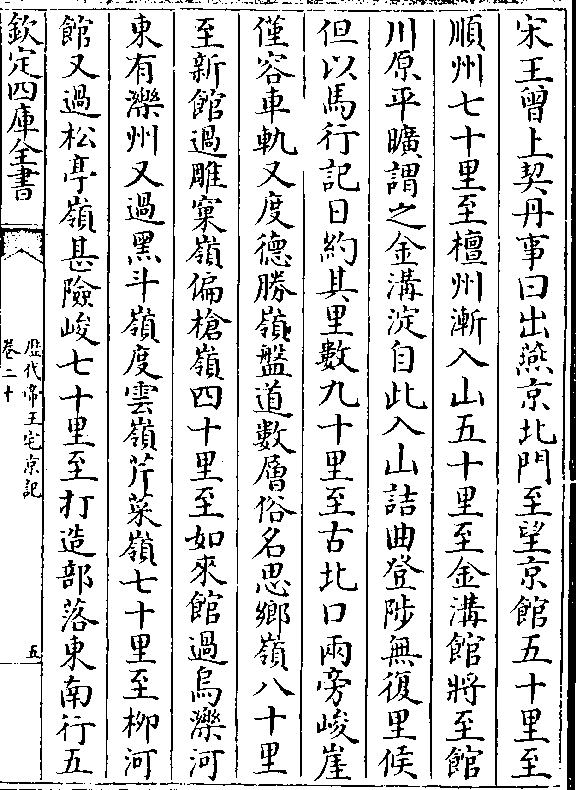 宋王曾上契丹事曰出燕京北門至望京館五十里至
順州七十里至檀州漸入山五十里至金溝館將至館
川原平曠謂之金溝淀自此入山詰曲登陟無復里候
但以馬行記日約其里數九十里至古北口兩旁峻崖
僅容車軌又度德勝嶺盤道數層俗名思鄉嶺八十里
至新館過雕窠嶺偏槍嶺四十里至如來館過烏灤河
東有灤州又過黑斗嶺度雲嶺芹菜嶺七十里至柳河
館又過松亭嶺甚險峻七十里至打造部落東南行五
欽定四庫全書
歷代帝王宅京記
卷二十
五